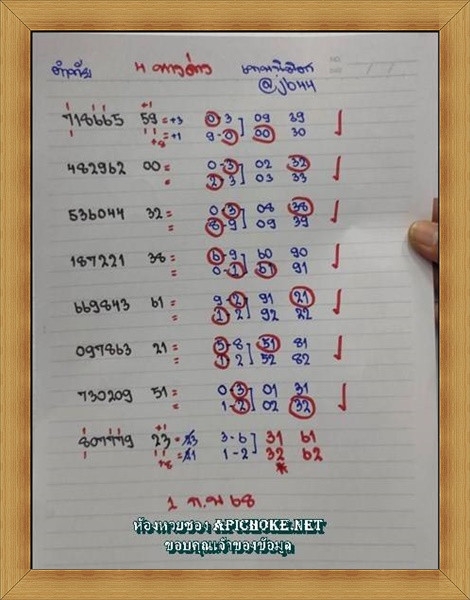 4 ดาวล่าง
@jb44
718665 59 = +3 0-3 09 39
= +1 9-0 00 30
482962 00 = 0-3 02 32
2-3 03 33
536044 32 = 0-3 08 38
8-9 09 39
187221 38 = 6-9 60 90
0-1 61 91
669843 61 = 9-2 91 21
1-2 92 22
097863 21 = 5-8 51 81
1-2 52 82
730209 51 = 0-3 01 31
1-2 02 32
807779 23 = 3-6 31 61
1-2 32 62
1 ก.พ 68
ห้องหวยซอง APICHOKE.NET
ขอบคุณเจ้าของข้อมูล